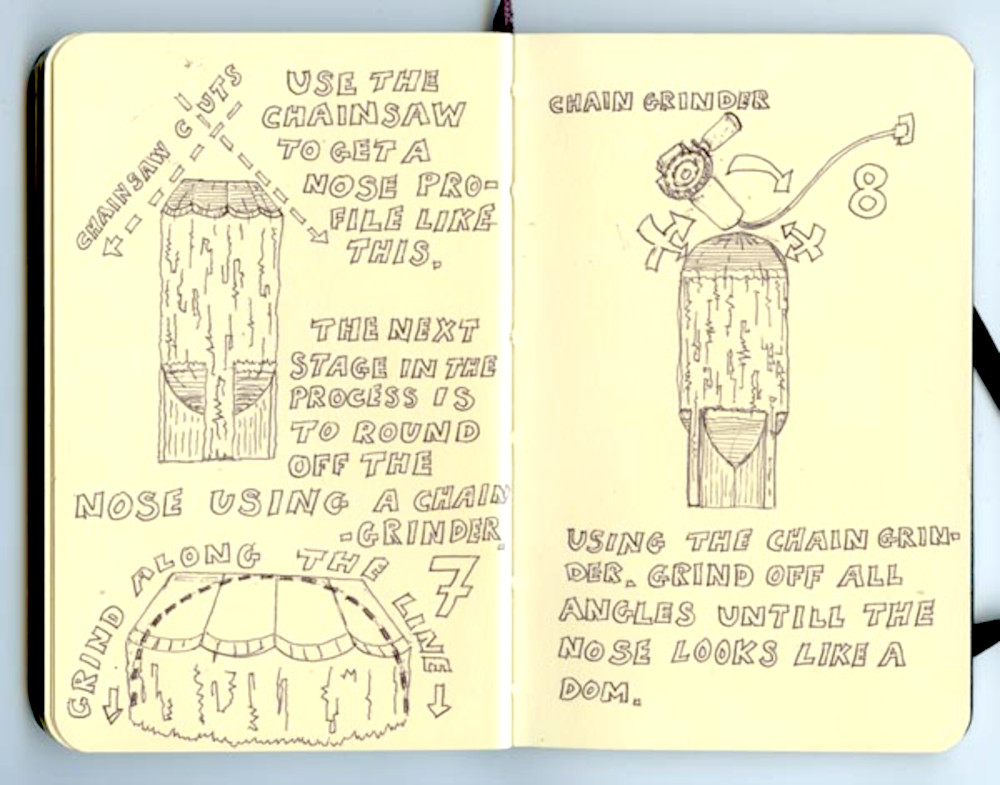 CHAINSAW CUTS
USE THE
CHAINSAW
TO GET A
NOSE PRO-
FILE LIKE
THIS.
THE NEXT
STAGE IN THE
PROCESS IS
TO ROUND
OFF THE
NOSE USING A CHAIN
-GRINDER.
7
GRIND ALONG THE LINE
CHAIN GRINDER
8
USING THE CHAIN GRIN-
DER. GRIND OFF ALL
ANGLES UNTILL THE
NOSE LOOKS LIKE A
DOM.